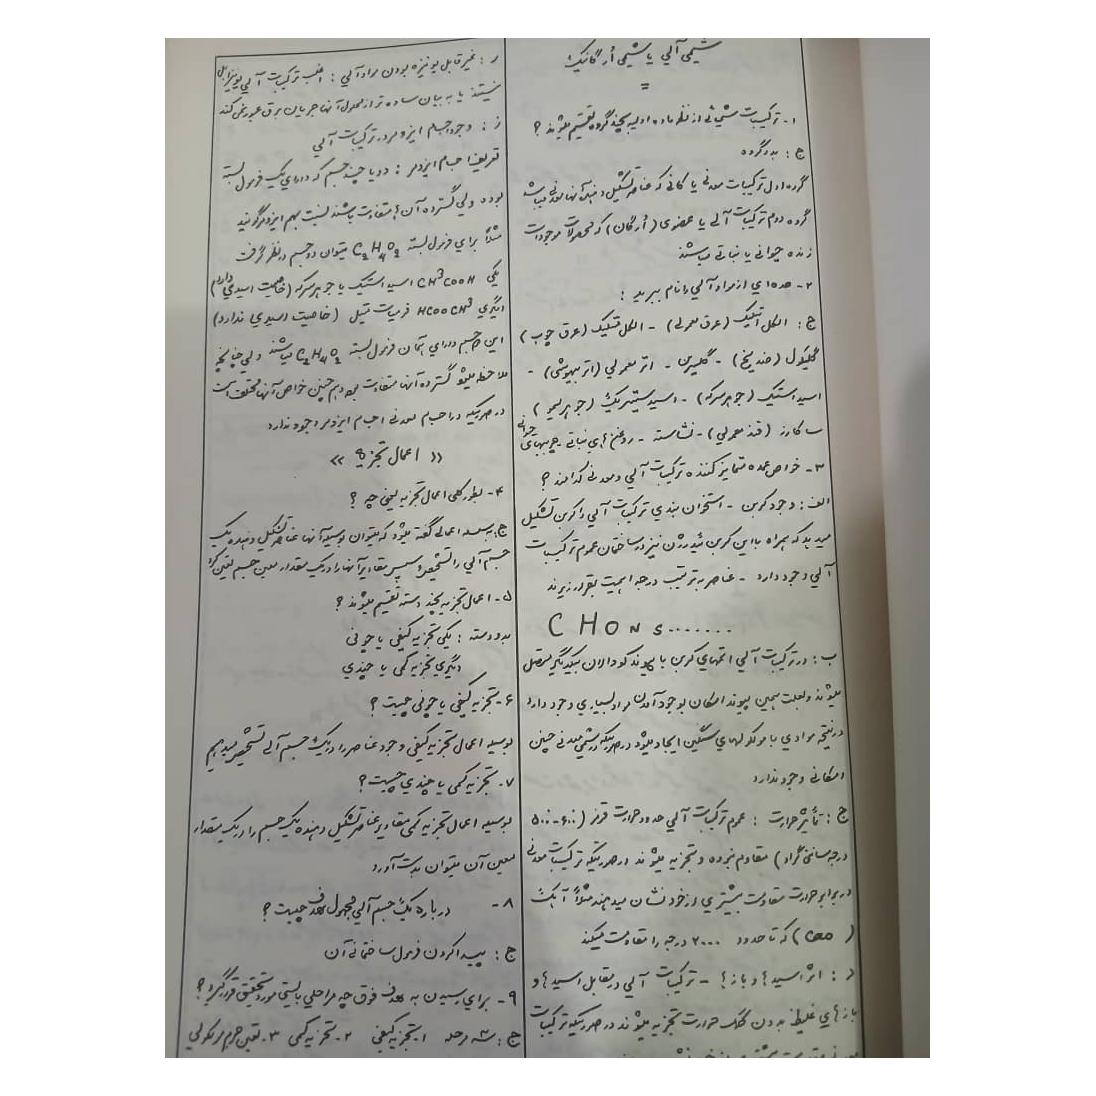 شیمی آلی یا شیمی ارگانیک
=
۱- ترکیبات شیمیائی از نظر ماده اولیه بچند گروه تقسیم میشوند ؟
ج : بدو گروه
گروه اول ترکیبات معدنی یا کانی که عناصر تشکیل دهنده آنها معدنی میباشد
گروه دوم ترکیبات آلی یا عضوی (ارگان) که محصولات موجودات
زنده حیوانی یا نباتی میباشند
۲- عده ای از مواد آلی را نام ببرید :
ج : الکل اتیلیک (عرق معمولی) - الکل متیلیک (عرق چوب)
گلیکول (ضد یخ) - گلیسرین - اتر معمولی (اتر بیهوشی) -
اسید استیک (جوهر سرکه) - اسید سیتریک (جوهر لیمو)
ساکارز (قند معمولی) - نشاسته - روغن های نباتی - چربیهای حیوانی
۳- خواص عمده متمایز کننده ترکیبات آلی و معدنی کدامند ؟
الف : وجود کربن - استخوان بندی ترکیبات آلی را کربن تشکیل
میدهد که همراه با این کربن ئیدرژن نیز در ساختمان عموم ترکیبات
آلی وجود دارد - عناصر بترتیب درجه اهمیت بقرار زیرند
C H O N S .......
ب : در ترکیبات آلی اتمهای کربن با پیوند کووالان بیکدیگر متصل
میشوند و بعلت همین پیوند امکان بوجود آمدن مواد بسیاری وجود دارد
در نتیجه موادی با مولکولهای سنگین ایجاد میشود در صورتیکه در شیمی معدنی چنین
امکانی وجود ندارد
ج : تأثیر حرارت : عموم ترکیبات آلی حدود حرارت قرمز (۶۰۰-۵۰۰
درجه سانتی گراد) مقاوم نبوده و تجزیه میشوند در صورتیکه ترکیبات معدنی
در برابر حرارت مقاومت بیشتری از خود نشان میدهند مثلاً آهک
(CaO) که تا حدود ۲۰۰۰ درجه را مقاومت میکند
د : اثر اسیدها و بازها - ترکیبات آلی در مقابل اسیدها و
بازهای غلیظ بدون کمک حرارت تجزیه میشوند در صورتیکه ترکیبات
ر : غیر قابل یونیزه بودن مواد آلی : اغلب ترکیبات آلی یونیزابل
نیستند یا به بیان ساده تر از محلول آنها جریان برق عبور نمی کند
ز : وجود اجسام ایزومر در ترکیبات آلی
تعریف اجسام ایزومر : دو یا چند جسم که دارای یک فرمول بسته
بوده ولی گسترده آن ها متفاوت باشند نسبت بهم ایزومر گویند
مثلاً برای فرمول بسته C2H4O2 میتوان دو جسم در نظر گرفت
یکی CH3COOH اسید استیک یا جوهر سرکه (خاصیت اسیدی دارد)
دیگری HCOOCH3 فرمیات متیل (خاصیت اسیدی ندارد)
این دو جسم دارای همان فرمول بسته C2H4O2 میباشند ولی چنانچه
ملاحظه میشود گسترده آنها متفاوت بوده همچنین خواص آنها مختلف است
در صورتیکه در اجسام معدنی اجسام ایزومر وجود ندارد
« اعمال تجزیه »
۴- بطور کلی اعمال تجزیه یعنی چه ؟
ج : بسلسله اعمالی گفته میشود که بتوان بوسیله آنها عناصر تشکیل دهنده یک
جسم آلی را تشخیص و سپس مقادیر آنها را در یک مقدار معین جسم تعیین کرد
۵- اعمال تجزیه بچند دسته تقسیم میشوند ؟
بدو دسته : یکی تجزیه کیفی یا چونی
دیگری تجزیه کمی یا چندی
۶- تجزیه کیفی یا چونی چیست ؟
بوسیله اعمال تجزیه کیفی وجود عناصر را در یک جسم آلی تشخیص میدهیم
۷- تجزیه کمی یا چندی چیست ؟
بوسیله اعمال تجزیه کمی مقادیر عناصر تشکیل دهنده یک جسم را در یک مقدار
معین آن میتوان بدست آورد
۸- درباره یک جسم آلی مجهول هدف چیست ؟
ج : پیدا کردن فرمول ساختمانی آن
۹- برای رسیدن به هدف فوق چه مراحلی بایستی مورد تحقیق قرار گیرد ؟
ج : سه مرحله ۱- تجزیه کیفی ۲- تجزیه کمی ۳- تعیین جرم مولکولی